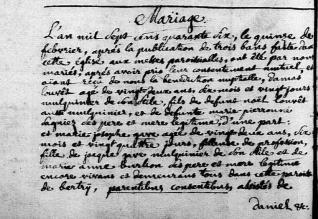 Mariage
L'an mil sept cens quarante six, le quinze de
febvrier, après la publication de trois bans faite dans
cette église aux messes paroissialles, ont été par nous
mariés, après avoir pris leur consentement mutuel, et
aiant receu de nous la bénédiction nuptialle, damas
louvêt agé de vingt deux ans, six mois et vingt jours
mulquinier de son stile, fils de defunct noël louvêt
aussi mulquinier, et de defunte marie pierronne
ses pere et mere legitime, d'une part.
et marie josephe give agée de vingt deux ans, six
mois et vingt quatre jours, fileuse de profession,
fille de josephe give mulquinier de son stile et de
marie anne burtion ses pere et mere legitime
encore vivans et demeurans tous dans cette paroisse
de bertry, parentibus consentibus, assistés de
daniel &c.